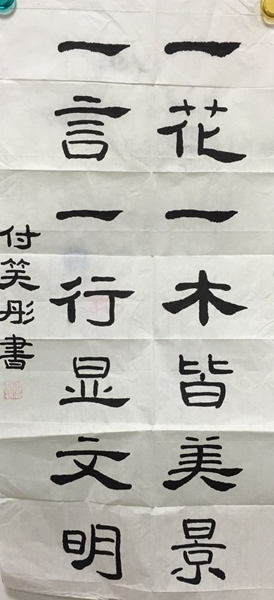 一花一木皆美景
一言一行显文明
付笑彤書